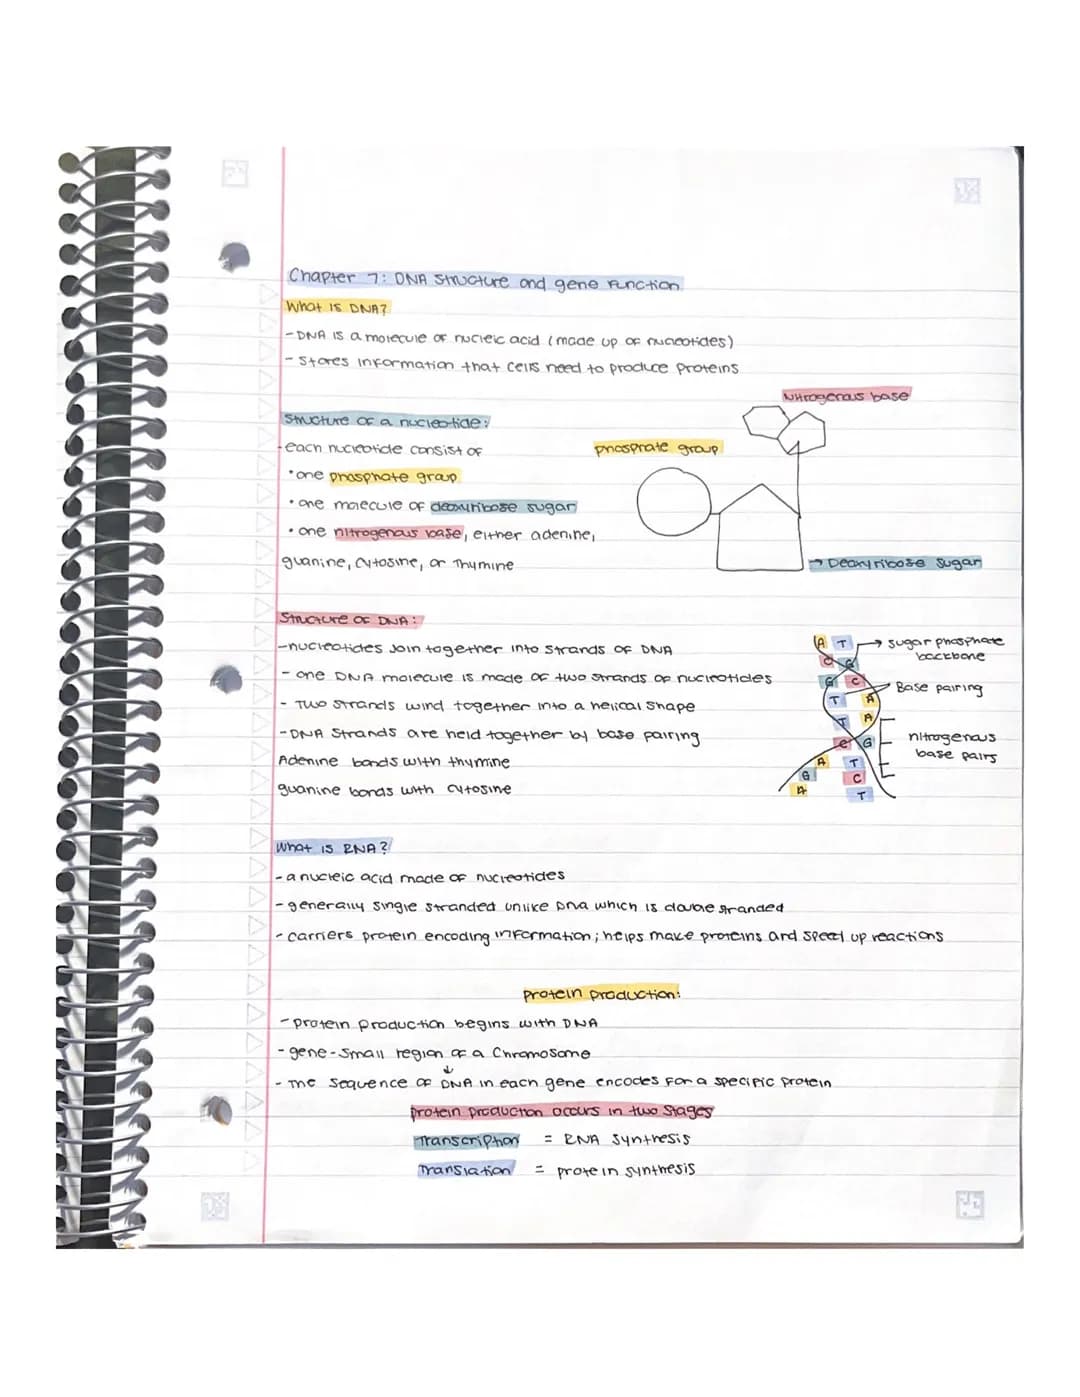 Chapter 7: DNA Structure and gene Function
What is DNA?
-DNA is a molecule of nucleic acid (made up of nucleotides)
- Stores information that cells need to produce proteins
Nitrogenous base
Structure of a nucleotide:
-each nucleotide consist of
phosphate group
•one phosphate group
• one molecule of deoxyribose sugar
• one nitrogenous base, either adenine,
guanine, cytosine, or Thymine
→ Deoxyribose Sugar
Structure of DNA:
-nucleotides join together into strands of DNA
- one DNA molecule is made of two strands of nucleotides
- Two strands wind together into a helical shape
-DNA Strands are held together by base pairing
Adenine bonds with thymine
guanine bonds with cytosine
A T → sugar phosphate
backbone
C G
G C
Base pairing
T A
T A
nitrogenous
base pairs
C G
A T
G C
A T
What is RNA?
-a nucleic acid made of nucleotides
-generally single stranded unlike DNA which is double stranded
-carriers protein encoding information; helps make proteins and speed up reactions
protein production:
-protein production begins with DNA
-gene-small region of a Chromosome
↓
- The sequence of DNA in each gene encodes for a specific protein
protein production occurs in two stages
Transcription = RNA Synthesis
Translation = protein synthesis